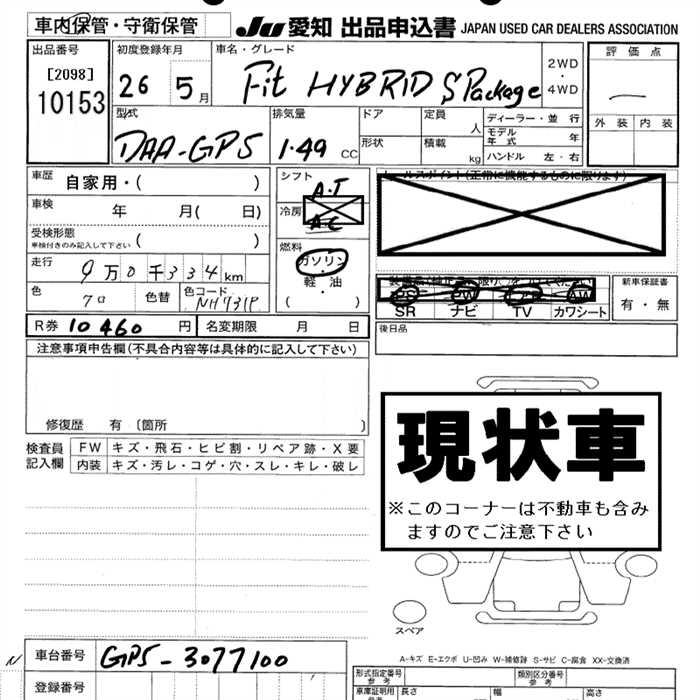 車内保管・守衛保管
JU 愛知 出品申込書 JAPAN USED CAR DEALERS ASSOCIATION
出品番号
[2098]
10153
初度登録年月
26 5月
車名・グレード
Fit HYBRID S Package
2WD
・
4WD
評価点
外装 内装
型式
DAA-GP5
排気量
1.49 CC
ドア
形状
定員
人
積載
kg
ディーラー・並行
モデル年式 年
ハンドル 左・右
車歴
自家用・( )
車検
年 月( 日)
受検形態
車検付きのみ記入して下さい
( )
走行
9万0千334km
色
クロ
色替
色コード
NH731P
シフト
A・T
冷房
A・C
燃料
ガソリン
・
軽油
( )
セールスポイント(正常に機能するものに限ります)
SR ナビ TV カワシート
AW
新車保証書
有・無
R券 10460円
名変期限 月 日
後日品
注意事項申告欄(不具合内容等は具体的に記入して下さい)
修復歴 有〔箇所 〕
検査員記入欄
FW キズ・飛石・ヒビ割・リペア跡・X要
内装 キズ・汚レ・コゲ・穴・スレ・キレ・破レ
現状車
※このコーナーは不動車も含み
ますのでご注意下さい
スペア
A-キズ E-エクボ U-凹み W-補修跡 S-サビ C-腐食 XX-交換済
N
車台番号
GP5-3077100
登録番号
形式指定番号
参考
類別区分番号
参考
車庫証明用
長さ
幅
高さ